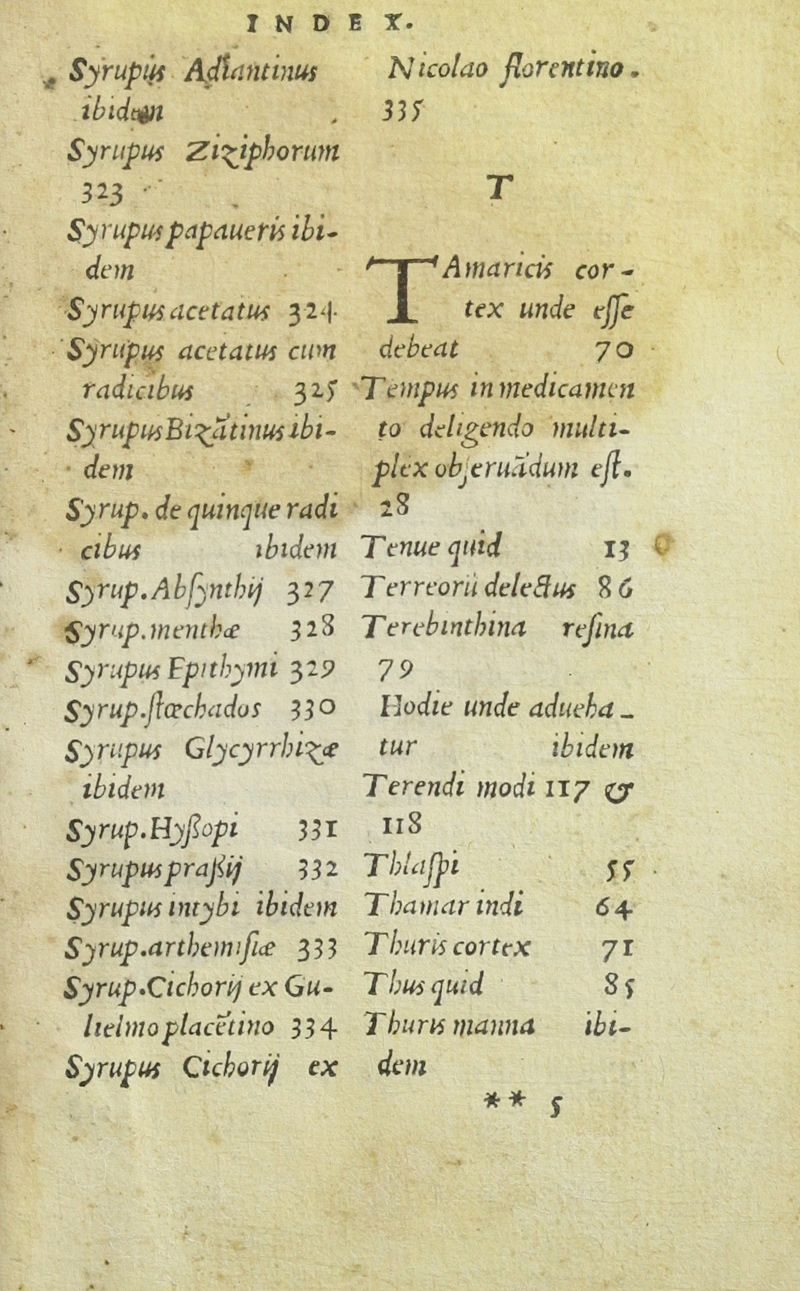 INDEX.
Syrupus Adiantinus
ibidem
Syrupus Ziziphorum
323
Syrupus papaueris ibi-
dem
Syrupus acetatus 324
Syrupus acetatus cum
radicibus 325
Syrupus Bizãtinus ibi-
dem
Syrup. de quinque radi
cibus ibidem
Syrup. Absynthij 327
Syrup. menthæ 328
Syrupus Epithymi 329
Syrup. stœchados 330
Syrupus Glycyrrhizæ
ibidem
Syrup. Hyssopi 331
Syrupus prassij 332
Syrupus intybi ibidem
Syrup. arthemisiæ 333
Syrup. Cichorij ex Gu-
lielmo placẽtino 334
Syrupus Cichorij ex
Nicolao florentino.
335
T
TAmaricis cor-
tex unde esse
debeat 70
Tempus in medicamen
to deligendo multi-
plex obseruãdum est.
28
Tenue quid 13
Terreorũ delectus 86
Terebinthina resina
79
Hodie unde adueha-
tur ibidem
Terendi modi 117 &
118
Thlaspi 55
Thamar indi 64
Thuris cortex 71
Thus quid 85
Thuris manna ibi-
dem
** 5